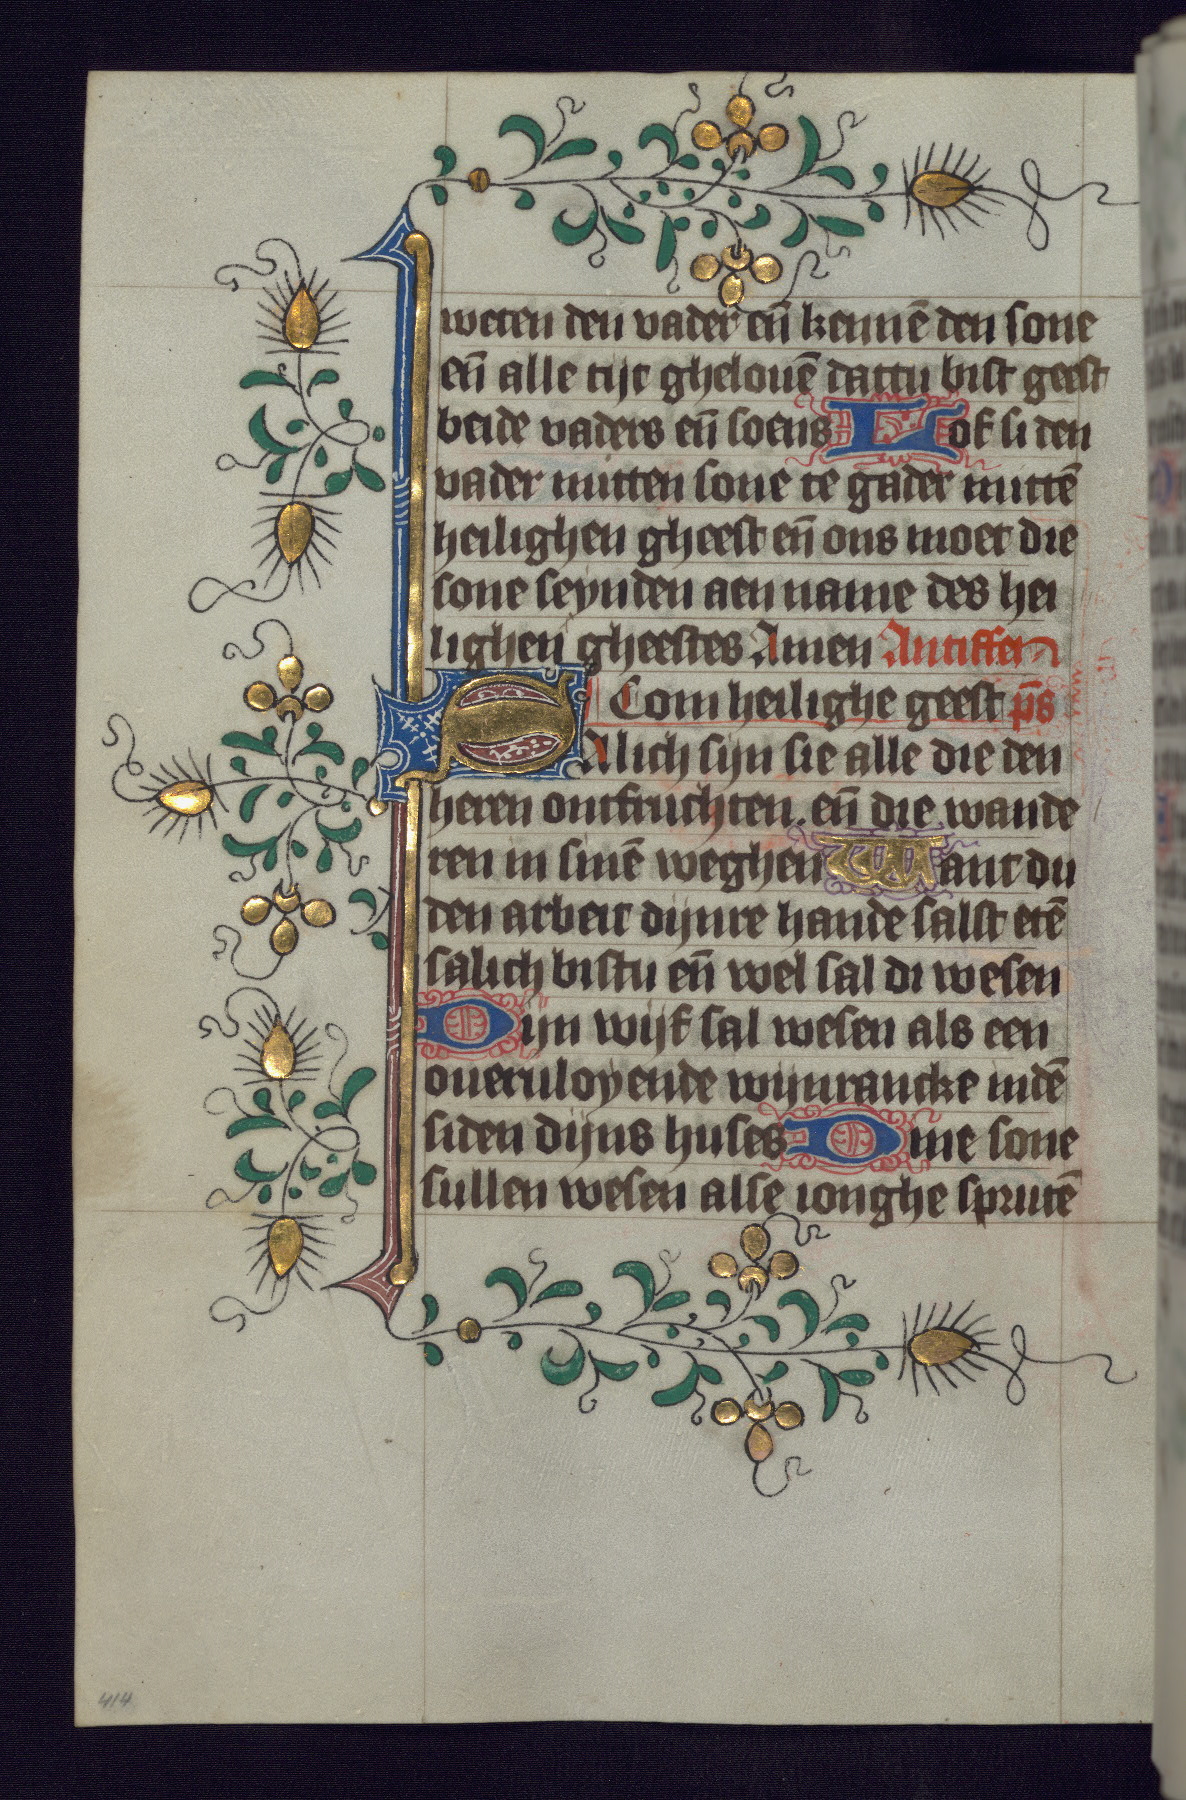 weten den vader en̄ kennē den sone
en̄ alle tijt ghelouē dattu bist geest
beide vaders en̄ soens Lof si den
vader mitten sone te gader mittē
heilighen gheest en̄ ons moet die
sone seynden aen name des hei
lighen gheestes Amen Antiffen
Com heilighe geest p̄s
SAlich sijn sie alle die den
heren ontfruchten. en̄ die wande
ren in sinē weghen Want du
den arbeit dijnre hande salst etē
salich bistu en̄ wel sal di wesen
Dijn wijf sal wesen als een
ouervloyende wijnrancke indē
siden dijns huses Dine sone
sullen wesen alse ionghe sprutē
414